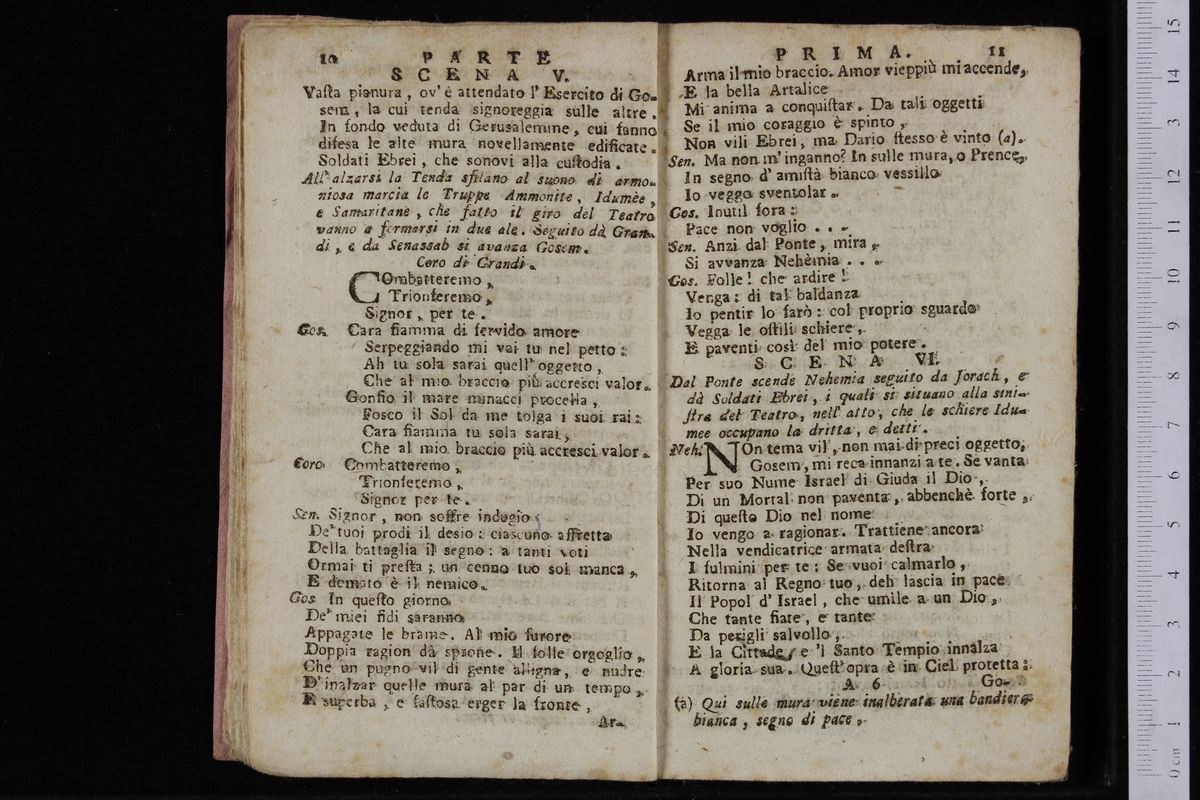 10 PARTE
SCENA V.
Vaſta pianura, ov' è attendato l' Eſercito di Go-
sem, la cui tenda signoreggia sulle altre.
In fondo veduta di Gerusalemme, cui fanno
difesa le alte mura novellamente edificate.
Soldati Ebrei, che sonovi alla cuſtodia.
All' alzarsi la Tenda sfilano al suono di armo-
niosa marcia le Truppe Ammonite, Idumèe,
e Samaritane, che fatto il giro del Teatro
vanno a formarsi in due ale. Seguito dà Gran-
di, e da Senassab si avanza Gosem.
Coro di Grandi.
COmbatteremo,
Trionferemo,
Signor, per te.
Gos. Cara fiamma di fervido amore
Serpeggiando mi vai tu nel petto:
Ah tu sola sarai quell' oggetto,
Che al mio braccio più accresci valor.
Gonfio il mare minacci procella,
Fosco il Sol da me tolga i suoi rai:
Cara fiamma tu sola sarai,
Che al mio braccio più accresci valor.
Coro Combatteremo,
Trionferemo,
Signor per te.
Sen. Signor, non soffre indugio
De' tuoi prodi il desio: ciascuno affretta
Della battaglia il segno: a tanti voti
Ormai ti preſta; un cenno tuo sol manca,
E domato è il nemico.
Gos. In queſto giorno
De' miei fidi saranno
Appagate le brame. Al mio furore
Doppia ragion dà sprone. Il folle orgoglio,
Che un pugno vil di gente alligna, e nudre
D' inalzar quelle mura al par di un tempo,
E superba, e faſtosa erger la fronte,
Ar-
PRIMA. 11
Arma il mio braccio. Amor vieppiù mi accende,
E la bella Artalice
Mi anima a conquiſtar. Da tali oggetti
Se il mio coraggio è spinto,
Non vili Ebrei, ma Dario ſtesso è vinto (a).
Sen. Ma non m' inganno? In sulle mura, o Prence,
In segno d' amiſtà bianco vessillo
Io veggo sventolar.
Gos. Inutil fora:
Pace non voglio . . .
Sen. Anzi dal Ponte, mira,
Si avvanza Nehèmia . . .
Gos. Folle! che ardire!
Venga: di tal baldanza
Io pentir lo farò: col proprio sguardo
Vegga le oſtili schiere,
E paventi così del mio potere.
SCENA VI.
Dal Ponte scende Nehemia seguito da Jorach, e
dà Soldati Ebrei, i quali si situano alla sini-
ſtra del Teatro, nell' atto, che le schiere Idu-
mee occupano la dritta, e detti.
Neh. NOn tema vil, non mai di preci oggetto,
Gosem, mi reca innanzi a te. Se vanta
Per suo Nume Israel di Giuda il Dio,
Di un Mortal non paventa, abbenchè forte,
Di queſto Dio nel nome
Io vengo a ragionar. Trattiene ancora
Nella vendicatrice armata deſtra
I fulmini per te: Se vuoi calmarlo,
Ritorna al Regno tuo, deh lascia in pace
Il Popol d' Israel, che umile a un Dio,
Che tante fiate, e tante
Da perigli salvollo,
E la Cittade, e 'l Santo Tempio innalza
A gloria sua. Queſt' opra è in Ciel protetta:
A 6 Go-
(a) Qui sulle mura viene inalberata una bandiera
bianca, segno di pace.